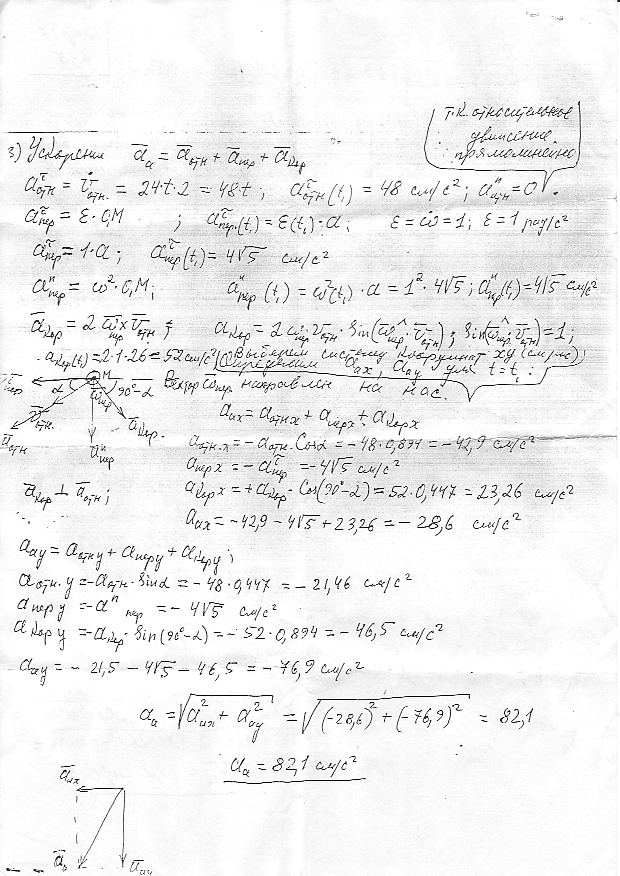 т.к. относительное
движение
прямолинейно
3) Ускорение ā_a = ā_отн + ā_пер + ā_кор
a^τ_отн = v̇_отн. = 24·t·2 = 48·t; a^τ_отн(t₁) = 48 см/с²; a^n_отн = 0.
a^τ_пер = ε·O₁M; a^τ_пер.(t₁) = ε(t₁)·a; ε = ω̇ = 1; ε = 1 рад/с²
a^τ_пер = 1·a; a^τ_пер(t₁) = 4√5 см/с²
a^n_пер = ω²·O₁M; a^n_пер(t₁) = ω²(t₁)·a = 1²·4√5; a^n_пер(t₁) = 4√5 см/с²
ā_кор = 2 ω̄_пер × v̄_отн; a_кор = 2 ω_пер·v_отн·Sin(ω̄_пер^v̄_отн); Sin(ω̄_пер^v̄_отн) = 1;
a_кор(t₁) = 2·1·26 = 52 см/с² Выберем систему координат xy (см/ж);
Определим a_ax, a_ay для t = t₁:
ā^τ_пер α M 90°-α Вектор ω̄_пер направлен на нас.
v̄_отн. ω̄_пер ā_кор.
ā_отн ā^n_пер
a_ax = a_отн x + a_пер x + a_кор x
a_отн.x = -a_отн·Cosα = -48·0,894 = -42,9 см/с²
a_пер x = -a^τ_пер = -4√5 см/с²
ā_кор ⊥ ā_отн; a_кор x = +a_кор·Cos(90°-α) = 52·0,447 = 23,26 см/с²
a_ax = -42,9 - 4√5 + 23,26 = -28,6 см/с²
a_ay = a_отн y + a_пер y + a_кор y;
a_отн.y = -a_отн·Sinα = -48·0,447 = -21,46 см/с²
a_пер y = -a^n_пер = -4√5 см/с²
a_кор y = -a_кор·Sin(90°-α) = -52·0,894 = -46,5 см/с²
a_ay = -21,5 - 4√5 - 46,5 = -76,9 см/с²
a_a = √(a²_ax + a²_ay) = √((-28,6)² + (-76,9)²) = 82,1
a_a = 82,1 см/с²
ā_ax
ā_a ā_ay